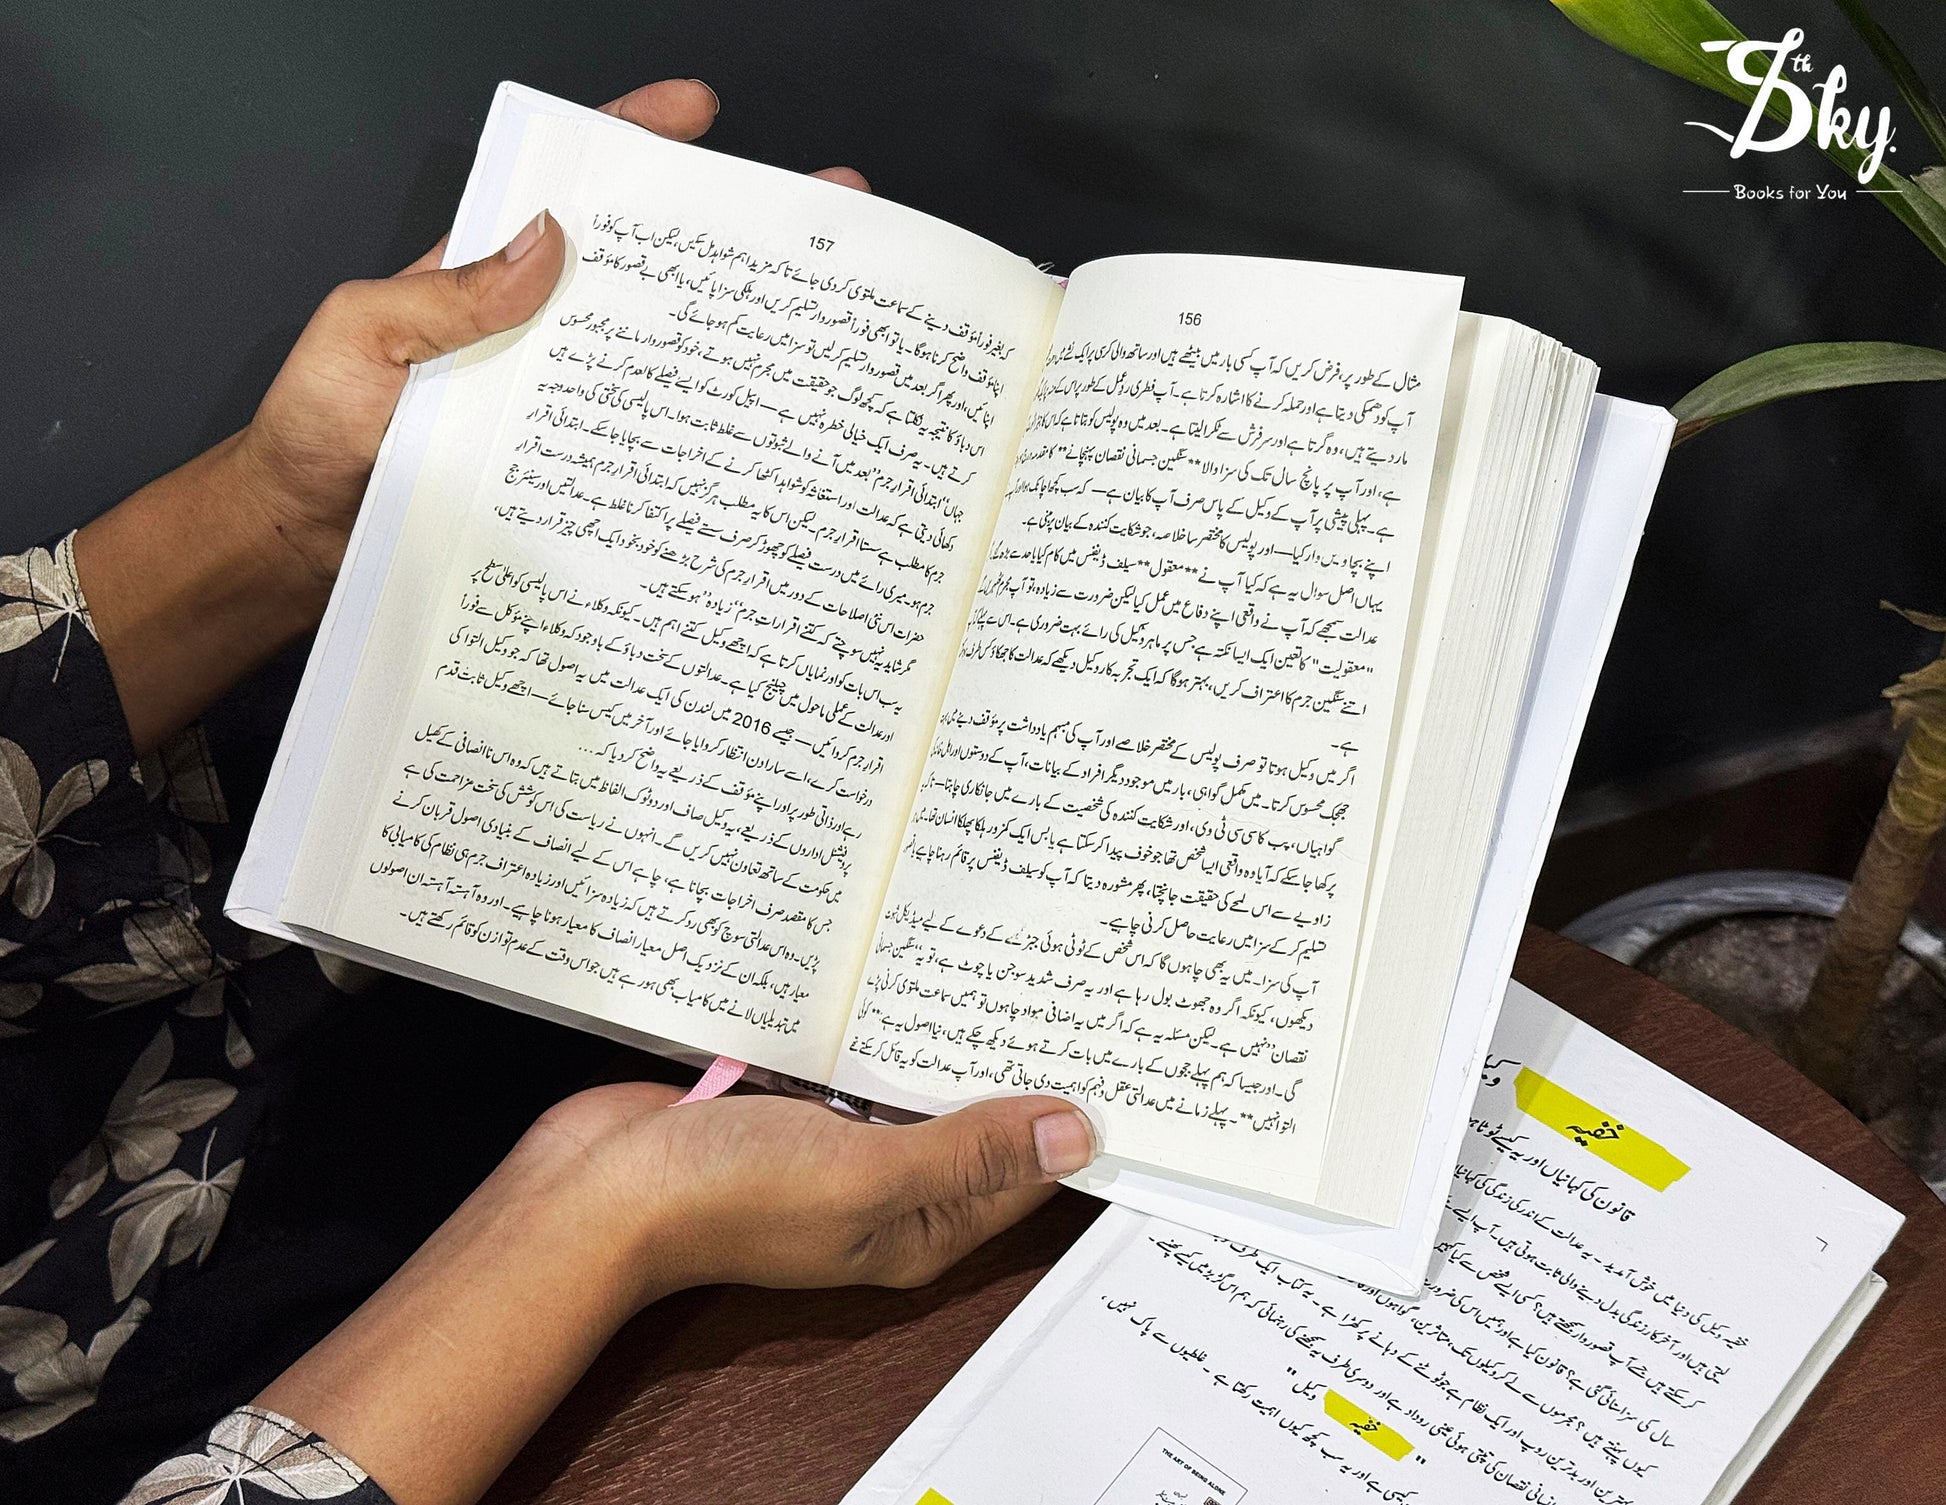 5th Sky.
Books for You
156
مثال کے طور پر، فرض کریں کہ آپ کسی بار میں بیٹھے ہیں اور ساتھ والی کرسی پر ایک نشے میں
آپ کو دھمکی دیتا ہے اور حملہ کرنے کا اشارہ کرتا ہے۔ آپ فطری ردِعمل کے طور پر اس کے
مار دیتے ہیں، وہ گرتا ہے اور سر فرش سے ٹکرا لیتا ہے۔ بعد میں وہ پولیس کو بتاتا ہے کہ اس کا
ہے، اور آپ پر پانچ سال تک کی سزا والا **سنگین جسمانی نقصان پہنچانے** کا مقدمہ
ہے۔ پہلی پیشی پر آپ کے وکیل کے پاس صرف آپ کا بیان ہے — کہ سب کچھ اچانک ہوا اور
اپنے بچاو میں وار کیا — اور پولیس کا مختصر سا خلاصہ، جو شکایت کنندہ کے بیان پر مبنی ہے۔
یہاں اصل سوال یہ ہے کہ کیا آپ نے **معقول** سیلف ڈیفنس میں کام کیا یا حد سے بڑھ گئے
عدالت سمجھے کہ آپ نے واقعی اپنے دفاع میں عمل کیا لیکن ضرورت سے زیادہ، تو آپ مجرم
"معقولیت" کا تعین ایک ایسا نکتہ ہے جس پر ماہر وکیل کی رائے بہت ضروری ہے۔ اس سے پہلے
اتنے سنگین جرم کا اعتراف کریں، بہتر ہوگا کہ ایک تجربہ کار وکیل دیکھے کہ عدالت کا جھکاؤ کس طرف
ہے۔
اگر میں وکیل ہوتا تو صرف پولیس کے مختصر خلاصے اور آپ کی مبہم یادداشت پر مؤقف دینے میں
جھجک محسوس کرتا۔ میں مکمل گواہی، بار میں موجود دیگر افراد کے بیانات، آپ کے دوستوں اور اہل
گواہیاں، پب کا سی سی ٹی وی، اور شکایت کنندہ کی شخصیت کے بارے میں جانکاری چاہتا — تاکہ
پرکھا جا سکے کہ آیا وہ واقعی ایسا شخص تھا جو خوف پیدا کر سکتا ہے یا بس ایک کمزور ہلکا پھلکا انسان تھا۔
زاویے سے اس لمحے کی حقیقت جانچتا، پھر مشورہ دیتا کہ آپ کو سیلف ڈیفنس پر قائم رہنا چاہیے یا
تسلیم کر کے سزا میں رعایت حاصل کرنی چاہیے۔
آپ کی سزا۔ میں یہ بھی چاہوں گا کہ اس شخص کے ٹوٹی ہوئی جبڑے کے دعوے کے لیے میڈیکل ثبوت
دیکھوں، کیونکہ اگر وہ جھوٹ بول رہا ہے اور یہ صرف شدید سوجن یا چوٹ ہے، تو یہ "سنگین جسمانی
نقصان" نہیں ہے۔ لیکن مسئلہ یہ ہے کہ اگر میں یہ اضافی مواد چاہوں تو ہمیں سماعت ملتوی کرنی پڑے
گی۔ اور جیسا کہ ہم پہلے ججوں کے بارے میں بات کرتے ہوئے دیکھ چکے ہیں، نیا اصول یہ ہے: **کوئی
التوا نہیں**۔ پہلے زمانے میں عدالتی عقل و فہم کو اہمیت دی جاتی تھی، اور آپ عدالت کو یہ قائل کر سکتے تھے
157
کہ بغیر فوراً مؤقف دینے کے سماعت ملتوی کر دی جائے تا کہ مزید اہم شواہد مل سکیں، لیکن اب آپ کو فوراً
اپنا مؤقف واضح کرنا ہوگا۔ یا تو ابھی فوراً قصوروار تسلیم کریں اور ہلکی سزا پائیں، یا ابھی بے قصور کا مؤقف
اپنائیں، اور پھر اگر بعد میں قصوروار تسلیم کر لیں تو سزا میں رعایت کم ہو جائے گی۔
اس دباؤ کا نتیجہ یہ نکلتا ہے کہ کچھ لوگ جو حقیقت میں مجرم نہیں ہوتے، خود کو قصوروار ماننے پر مجبور محسوس
کرتے ہیں۔ یہ صرف ایک خیالی خطرہ نہیں ہے — اپیل کورٹ کو ایسے فیصلے کالعدم کرنے پڑے ہیں
جہاں "ابتدائی اقرارِ جرم" بعد میں آنے والے ثبوتوں سے غلط ثابت ہوا۔ اس پالیسی کی سختی کی واحد وجہ یہ
دکھائی دیتی ہے کہ عدالت اور استغاثہ کو شواہد اکٹھا کرنے کے اخراجات سے بچایا جا سکے۔ ابتدائی اقرارِ
جرم کا مطلب ہے سستا اقرارِ جرم۔ لیکن اس کا یہ مطلب ہرگز نہیں کہ ابتدائی اقرارِ جرم ہمیشہ درست اقرارِ
جرم ہو۔ میری رائے میں درست فیصلے کو چھوڑ کر صرف سستے فیصلے پر اکتفا کرنا غلط ہے۔ عدالتیں اور سینئر جج
حضرات اس نئی اصلاحات کے دور میں اقرارِ جرم کی شرح بڑھنے کو خود بخود ایک اچھی چیز قرار دیتے ہیں،
مگر شاید یہ نہیں سوچتے کہ کتنے اقراراتِ جرم "زیادہ" ہو سکتے ہیں۔
یہ سب اس بات کو اور نمایاں کرتا ہے کہ اچھے وکیل کتنے اہم ہیں۔ کیونکہ وکلاء نے اس پالیسی کو اعلیٰ سطح پر
اور عدالت کے عملی ماحول میں چیلنج کیا ہے۔ عدالتوں کے سخت دباؤ کے باوجود کہ وکلاء اپنے مؤکل سے فوراً
اقرارِ جرم کروائیں — جیسے 2016 میں لندن کی ایک عدالت میں یہ اصول تھا کہ جو وکیل التوا کی
درخواست کرے، اسے سارا دن انتظار کروایا جائے اور آخر میں کیس سنا جائے — اچھے وکیل ثابت قدم
رہے اور ذاتی طور پر اور اپنے مؤقف کے ذریعے یہ واضح کر دیا کہ ....
پروفیشنل اداروں کے ذریعے، یہ وکیل صاف اور دوٹوک الفاظ میں بتاتے ہیں کہ وہ اس ناانصافی کے کھیل
میں حکومت کے ساتھ تعاون نہیں کریں گے۔ انہوں نے ریاست کی اس کوشش کی سخت مزاحمت کی ہے
جس کا مقصد صرف اخراجات بچانا ہے، چاہے اس کے لیے انصاف کے بنیادی اصول قربان کرنے
پڑیں۔ وہ اس عدالتی سوچ کو بھی رد کرتے ہیں کہ زیادہ سزائیں اور زیادہ اعترافِ جرم ہی نظام کی کامیابی کا
معیار ہیں، بلکہ ان کے نزدیک اصل معیار انصاف کا معیار ہونا چاہیے۔ اور وہ آہستہ آہستہ ان اصولوں
میں تبدیلیاں لانے میں کامیاب بھی ہو رہے ہیں جو اس وقت کے عدم توازن کو قائم رکھتے ہیں۔
خفیہ
قانون کی کہانیاں اور یہ کیسے ٹوٹا
خفیہ وکیل کی دنیا میں خوش آمدید۔ یہ عدالت کے اندر کی زندگی کی کہانیاں
خفیہ
وکیل"
THE ART OF BEING ALONE